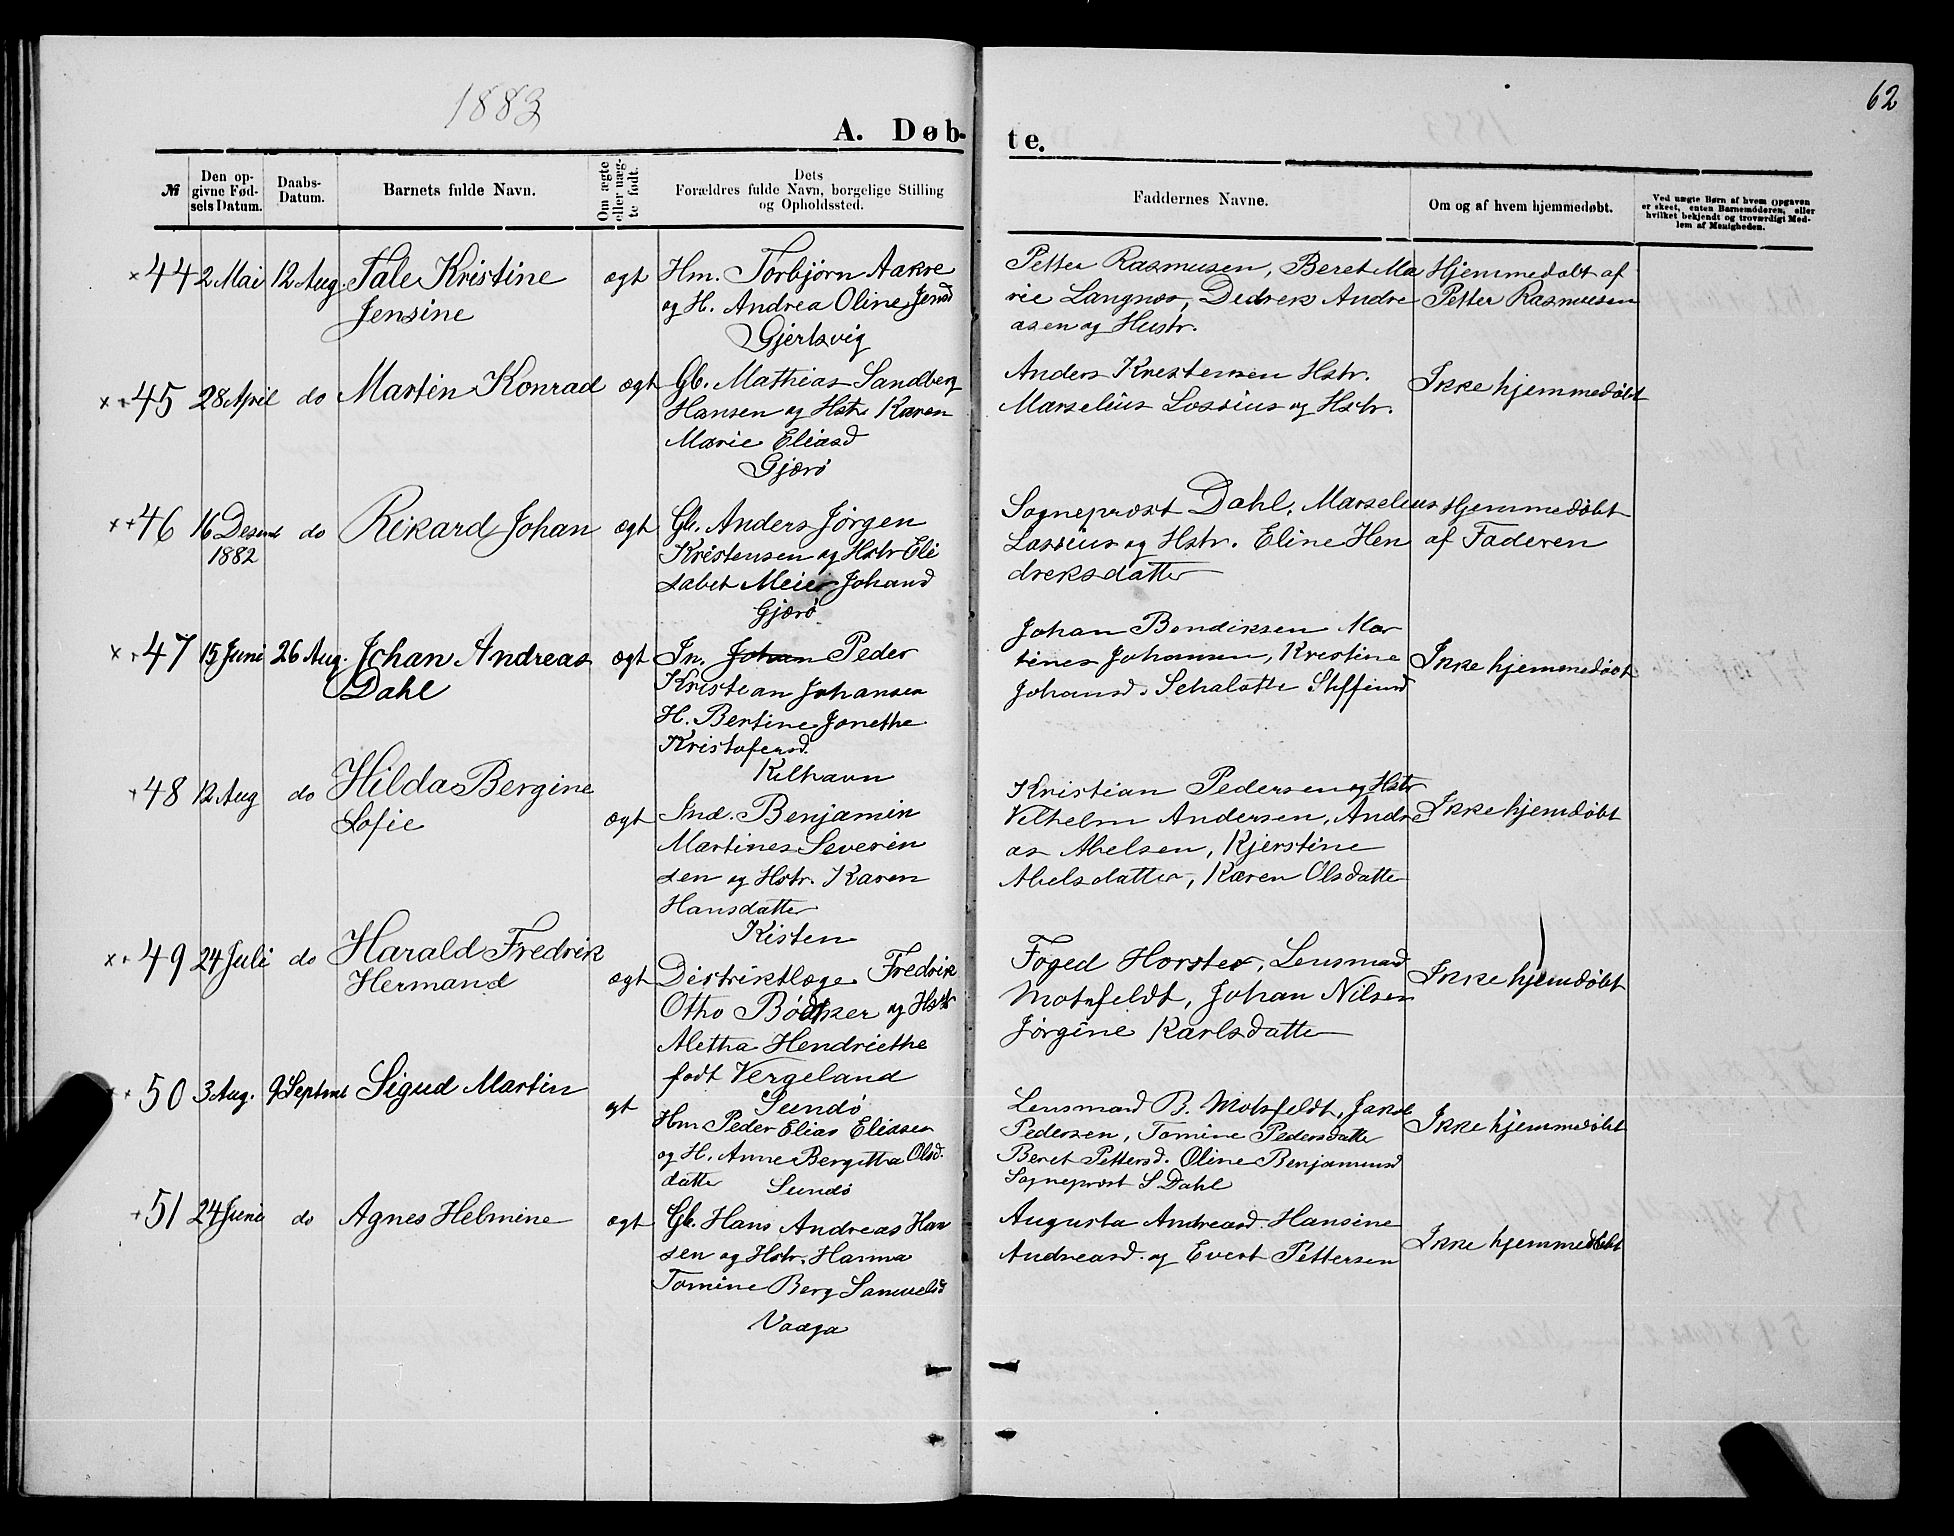 1883
62
A. Døb-
te.
№
Den op-
givne Fød-
sels Datum.
Daabs-
Datum.
Barnets fulde Navn.
Om ægte
eller uæg-
te født.
Dets
Forældres fulde Navn, borgelige Stilling
og Opholdssted.
Faddernes Navne.
Om og af hvem hjemmedøbt.
Ved uægte Børn af hvem Opgaven
er skeet, enten Barnemoderen, eller
hvilket bekjendt og troværdigt Med-
lem af Menigheden.
×44 2 Mai 12 Aug. Tale Kristine
Jensine
ægt
Hm. Torbjørn Aakre
og H. Andrea Oline Jensd
Gjertsvig
Petter Rasmusen, Beret Ma
rie Langnos, Dedrek Andre
asen og Hustr.
Hjemmedøbt af
Petter Rasmusen
×+45 28 April do Martin Konrad
ægt
Gb. Mathias Sandberg
Hansen og Hstr Karen
Marie Eliasd
Gjærø
Anders Krestensen Hstr.
Marselius Lossius og Hstr.
Ikke hjemmedøbt
×+46 16 Desemt do Rikard Johan
1882
ægt
Gb. Anders Jørgen
Kristensen og Hstr Eli
sabet Meier Johansd
Gjærø
Sogneprost Dahl, Marselius
Lossius og Hstr. Eline Hen
dreksdatter
Hjemmedøbt
af Faderen
×+47 15 Juni 26 Aug. Johan Andreas
Dahl
ægt
In. Johan Peder
Kristian Johansen
H. Bertine Jonethe
Kristofersd.
Kilhavn
Johan Bendiksen Mar
tines Johansen, Kristine
Johansd. Schalotte Steffensd
Ikke hjemmedøbt
+48 12 Aug do Hilda Bergine
Sofie
ægt
Ind. Benjamin
Martines Severin
sen og Hstr. Karen
Hansdatter
Kisten
Kristian Pedersen og Hstr
Vilhelm Andersen, Andre
as Abelsen, Kjerstine
Abelsdatter, Karen Olsdatter
Ikke hjemdøbt
×+49 24 Juli do Harald Fredrik
Hermand
ægt
Distriktlæge Fredrik
Otho Bødtker og Hstr
Aletha Hendriethe
født Vergeland
Sundø
Foged Horster, Lensmand
Motzfeldt, Johan Nilsen
Jørgine Karlsdatter
Ikke hjemdøbt
50 3 Aug. 9 Septmt Sigud Martin
gt
Hm Peder Elias Eliasen
og H. Anne Bergitta Olsd.
datter
Sundø
Lensmand B. Motzfeldt, Jakob
Pedersen, Tomine Pedersdatter
Beret Pettersd. Oline Benjaminsd
Sogneprost S Dahl
Ikke hjemmedøbt
+51 24 Juni do Agnes Helmine
ægt
Gb. Hans Andreas Han
sen og Hstr. Hanna
Tomine Berg Samuelsd
Vaaga
Augusta Andreasd. Hansine
Andreasd. og Evert Pettersen
Ikke hjemmedøbt